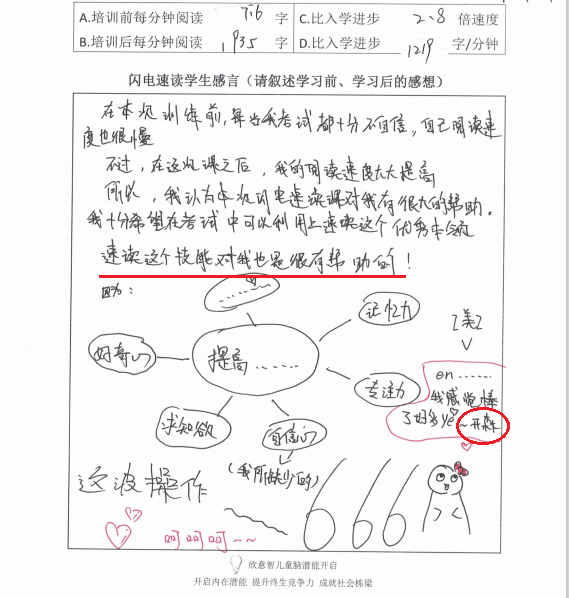 A.培训前每分钟阅读 716 字 C.比入学进步 2.8 倍速度
B.培训后每分钟阅读 1935 字 D.比入学进步 1219 字/分钟
闪电速读学生感言（请叙述学习前、学习后的感想）
在本次训练前,每当我考试都十分不自信,自己阅读速
度也很慢
不过,在这次课之后,我的阅读速度大大提高
所以,我认为本次闪电速读课对我有很大的帮助。
我十分希望在考试中可以利用上速读这个优秀本领
速读这个技能对我也是很有帮助的!
因为:
…………
记忆力
好奇心
提高……
专注力
求知欲
自信心
(我所缺少的)
【美】
en……
我感觉棒
了好多ye
~开森
这波操作
666
呵呵呵~~
欣意智儿童脑潜能开启
开启内在潜能 提升终生竞争力 成就社会栋梁